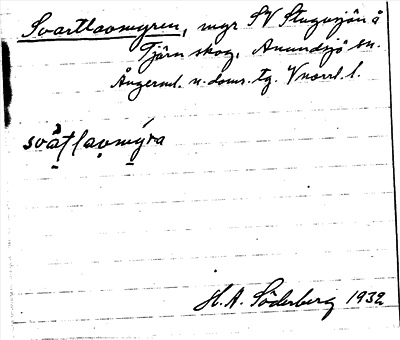 Svartlaomyren, myr SV Stugusjön å
Tjärn skog, Anundsjö sn.
Ångerml. n. doms. tg. Vnorrl. l.
svåṭlaomýra
H. A. Söderberg 1932